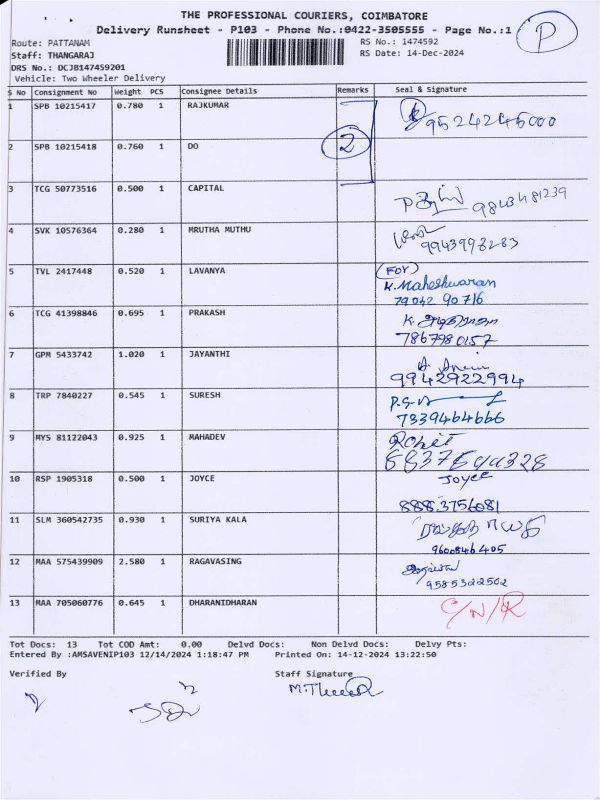 THE PROFESSIONAL COURIERS, COIMBATORE
Delivery Runsheet - P103 - Phone No.:0422-3505555 - Page No.:1
P
Route: PATTANAM RS No.: 1474592
Staff: THANGARAJ RS Date: 14-Dec-2024
DRS No.: DCJB147459201
Vehicle: Two Wheeler Delivery
S No Consignment No Weight PCS Consignee Details Remarks Seal & Signature
1 SPB 10215417 0.780 1 RAJKUMAR 9524245000
2 SPB 10215418 0.760 1 DO 2
3 TCG 50773516 0.500 1 CAPITAL 9843481239
4 SVK 10576364 0.280 1 MRUTHA MUTHU 9943998283
5 TVL 2417448 0.520 1 LAVANYA (FOR)
K. Maheshwaran
79042 90716
6 TCG 41398846 0.695 1 PRAKASH
7867980157
7 GPM 5433742 1.020 1 JAYANTHI
9942922994
8 TRP 7840227 0.545 1 SURESH
7339464666
9 MYS 81122043 0.925 1 MAHADEV Rohit
10 RSP 1905318 0.500 1 JOYCE Joyce
8883756081
11 SLM 360542735 0.930 1 SURIYA KALA
9600846405
12 MAA 575439909 2.580 1 RAGAVASING
9585322502
13 MAA 705060776 0.645 1 DHARANIDHARAN C/N/R
Tot Docs: 13 Tot COD Amt: 0.00 Delvd Docs: Non Delvd Docs: Delvy Pts:
Entered By :AMSAVENIP103 12/14/2024 1:18:47 PM Printed On: 14-12-2024 13:22:50
Verified By Staff Signature